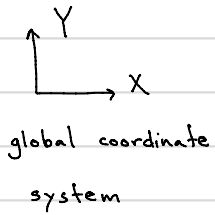 Y
X
global coordinate
system